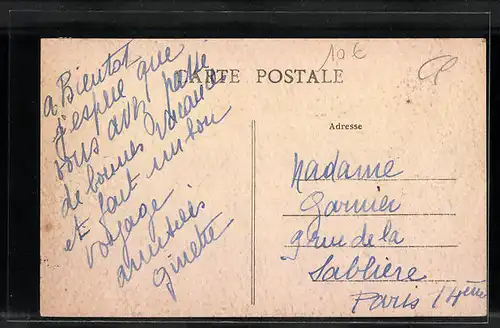 CARTE POSTALE
10€
a Bientot
j'espère que
vous avez passé
de bonnes vacances
et fait un bon
voyage
amitiés
ginette
Adresse
Madame
Garnier
9 rue de la
Sablière
Paris 14ème